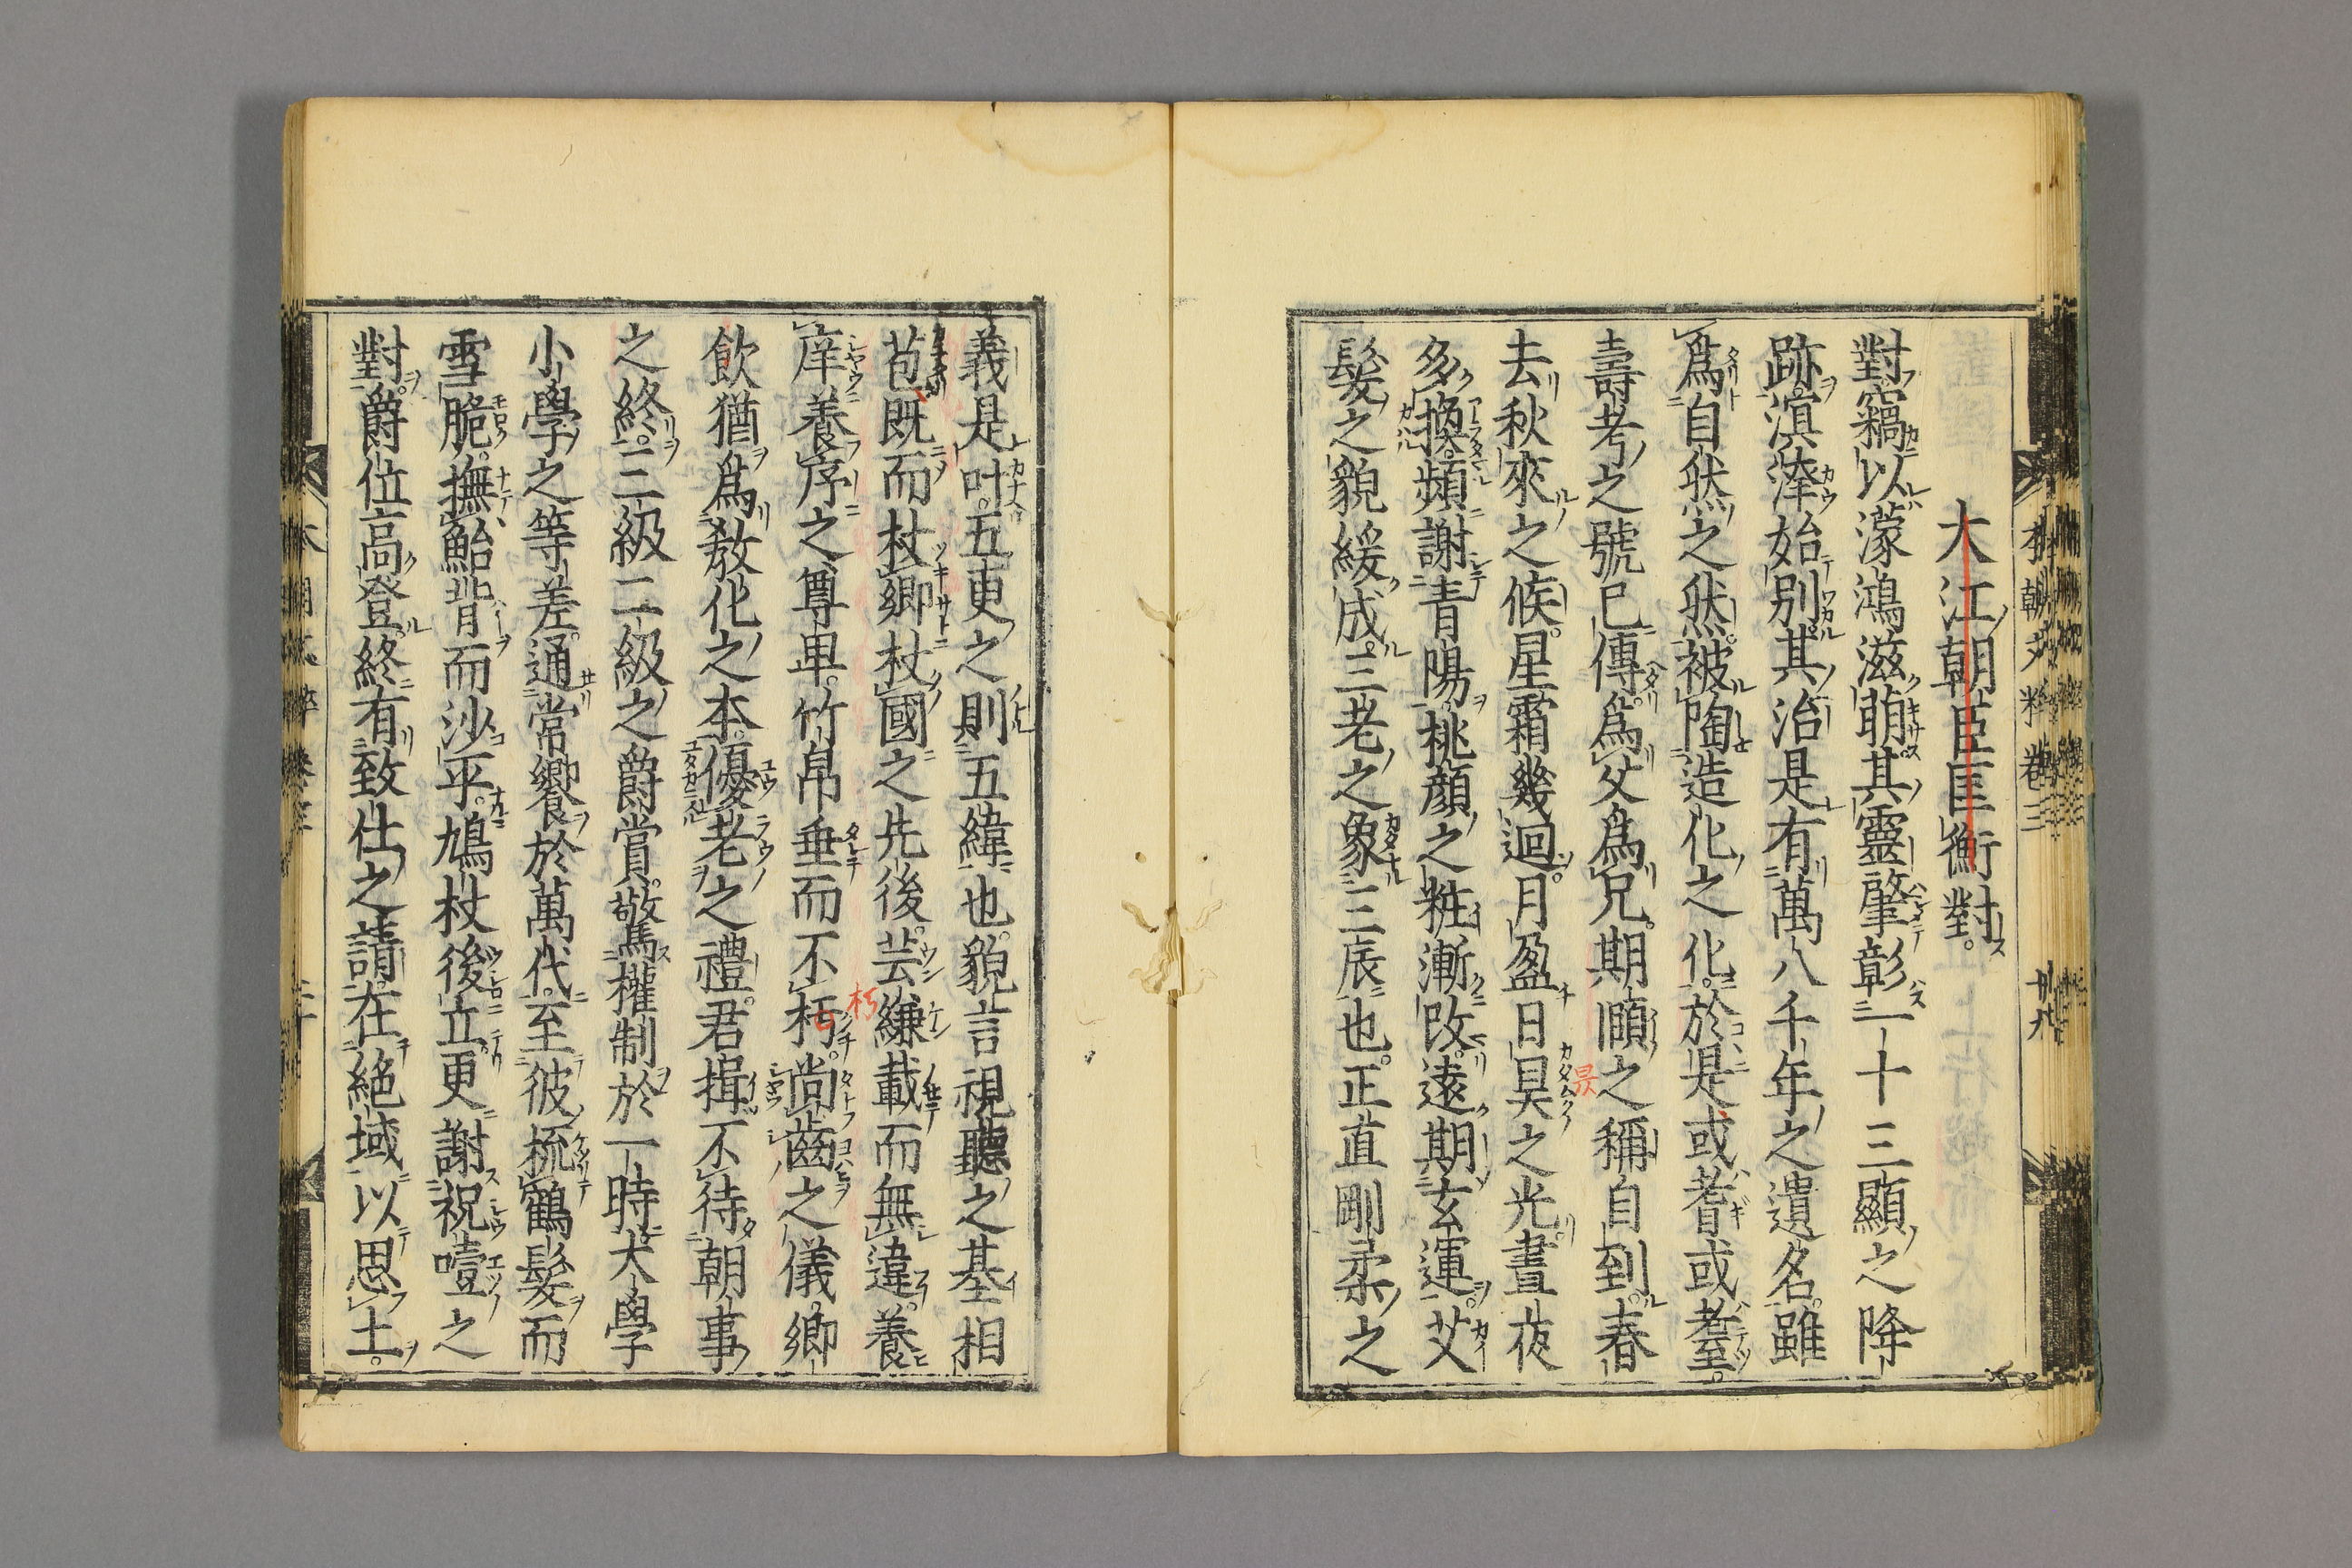 大江朝臣匡衡對。
對。竊以濛鴻滋萠。其靈肇彰。一十三顯之降
跡。溟涬始別。其治是有。萬八千年之遺名。雖
爲自然之然。被陶造化之化。於是或耆或耋。
壽考之號已傳。爲父爲兄。期頤之稱自到。春
去秋來之候。星霜幾迴。月盈日昃之光。晝夜
多換。頻謝青陽。桃顏之粧漸改。遠期玄運。艾
髮之貌緩成。三老之象三辰也。正直剛柔之
義是叶。五更之則五緯也。貌言視聽之基相
苞。既而杖鄉杖國之先後。芸縑載而無違。養
庠養序之尊卑。竹帛垂而不朽。尚齒之儀。鄉
飲猶爲教化之本。優老之禮。君揖不待朝事
之終。三級二級之爵賞。驚權制於一時。大學
小學之等差。通常饗於萬代。至彼梳鶴髮而
雪脆。撫鮐背而沙平。鳩杖後立。更謝祝噎之
對。爵位高登。終有致仕之請。在絕域以思土。
本朝文粹卷三
廿九
昃
朽